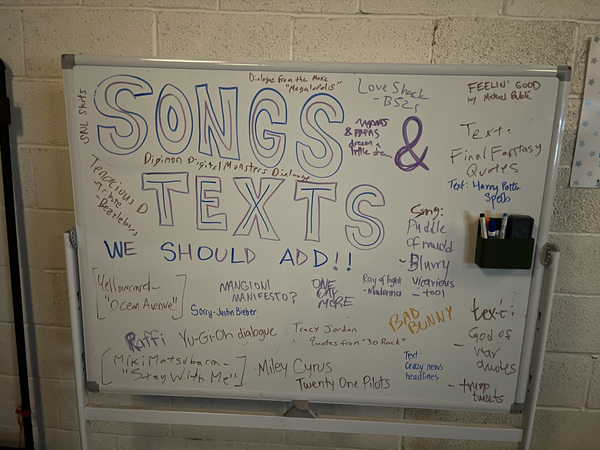 Dialogue from the Movie
"Megalopolis"
SNL Skits
SONGS
&
TEXTS
WE SHOULD ADD!!
Love Shack
- B52s
MAMAS
& PAPAS
dream a
little dream
FEELIN' GOOD
by Michael Bublé
Text:
Final Fantasy
Quotes
Text: Harry Potter
Spells
Digimon Digital Monsters Dialouge
Tenacious D
tribute
- Beelzeboss
Song:
Puddle
of mudd
- Blurry
vicarious
- tool
"Yellowcard-
"Ocean Avenue"
Sorry-Justin Bieber
MANGIONI
MANIFESTO?
ONE
DAY
MORE
Ray of light
- Madonna
BAD
BUNNY
text:
God of
- war
quotes
- trump
tweets
Raffi
Yu-Gi-Oh dialogue
Tracy Jordan
Quotes from "30 Rock"
Text:
Crazy news
headlines
Miki Matsubara-
"Stay With Me"
Miley Cyrus
Twenty One Pilots